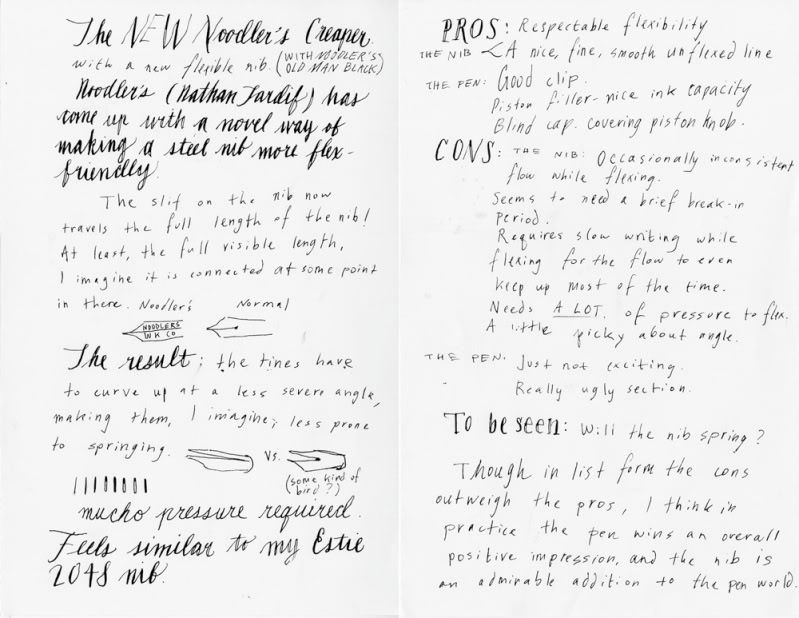 The NEW Noodler's Creaper
with a new flexible nib. (WITH NOODLER'S
OLD MAN BLACK)
Noodler's (Nathan Tardif) has
come up with a novel way of
making a steel nib more flex-
friendly.
The slit on the nib now
travels the full length of the nib!
At least, the full visible length,
I imagine it is connected at some point
in there. Noodler's Normal
NOODLERS
INK CO
The result: the tines have
to curve up at a less severe angle,
making them, I imagine, less prone
to springing. vs.
(some kind of
bird?)
mucho pressure required.
Feels similar to my Estie
2048 nib.
PROS: Respectable flexibility
THE NIB < A nice, fine, smooth unflexed line
THE PEN: Good clip.
Piston filler - nice ink capacity
Blind cap covering piston knob.
CONS: THE NIB: Occasionally inconsistent
flow while flexing.
Seems to need a brief break-in
period.
Requires slow writing while
flexing for the flow to even
keep up most of the time.
Needs A LOT of pressure to flex.
A little picky about angle.
THE PEN: Just not exciting.
Really ugly section.
To be seen: Will the nib spring?
Though in list form the cons
outweigh the pros, I think in
practice the pen wins an overall
positive impression, and the nib is
an admirable addition to the pen world.